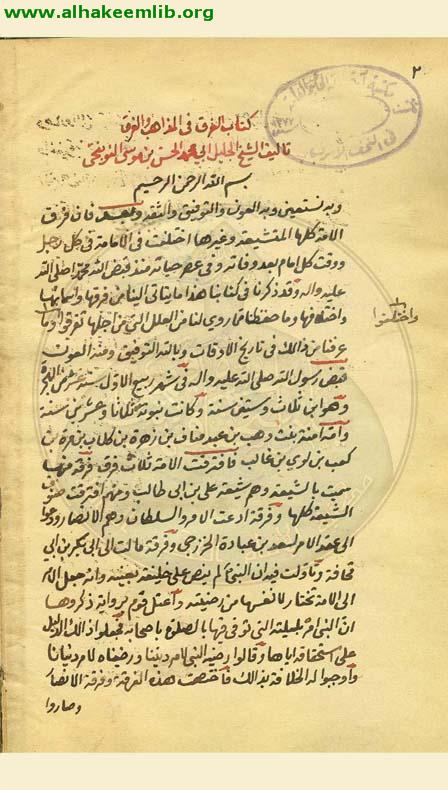 www.alhakeemlib.org
٢
كتاب الفرق فى المذاهب والفرق
تاليف الشيخ الجليل ابى محمد الحسن بن موسى النوبختى
بسم الله الرحمن الرحيم
وبه نستعين وبه العون والتوفيق والثقة وبعد فان فرق
الامة كلها المتشيعة وغيرها اختلفت فى الامامة فى كل رجل
ووقت كل امام بعد وفاته وفى عصر حياته منذ قبض الله محمدا صلى الله
عليه واله وقد ذكرنا فى كتابنا هذا ما يتاتى الينا من فرقها واسمائها
واختلافها وما حفظنا مما روى لنا من العلل التى من اجلها تفرقوا وما
واختلفوا
عرفنا من ذالك فى تاريخ الاوقات وبالله التوفيق ومنه العون
قبض رسول الله صلى الله عليه واله فى شهر ربيع الاول سنة عشر من الهجرة
وهو ابن ثلاث وستين سنة وكانت نبوته ثلاثا وعشرين سنة
وامه امنة بنت وهب بن عبد مناف بن زهرة بن كلاب بن مرة بن
كعب بن لوى بن غالب فافترقت الامة ثلاث فرق فرقة منها
سميت بالشيعة وهم شيعة على بن ابى طالب ومنهم افترقت صنوف
الشيعة كلها وفرقة ادعت الامر والسلطان وهم الانصار ودعوا
الى عقد الامر لسعد بن عبادة الخزرجى وفرقة مالت الى ابى بكر بن ابى
قحافة وتاولت فيه ان النبى لم ينص على خليفة بعينه وانه جعل الامر
الى الامة تختار لانفسها من رضيته واعتل قوم برواية ذكروها
ان النبى امره ليلته التى توفى فيها بالصلوة باصحابه فجعلوا ذالك الدليل
على استحقاقه اياها وقالوا رضيه النبى لامر ديننا ورضيناه لامر دنيانا
واوجبوا له الخلافة بذالك فاختصمت هذه الفرقة وفرقة الانصار
وصاروا